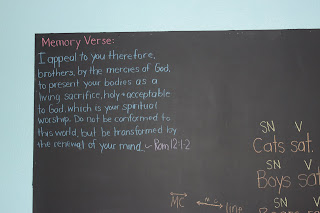 Memory Verse:
I appeal to you therefore,
brothers, by the mercies of God,
to present your bodies as a
living sacrifice, holy + acceptable
to God, which is your spiritual
worship. Do not be conformed to
this world, but be transformed by
the renewal of your mind. ~ Rom 12:1-2
SN V
Cats sat.
SN V
Boys sat
MC line